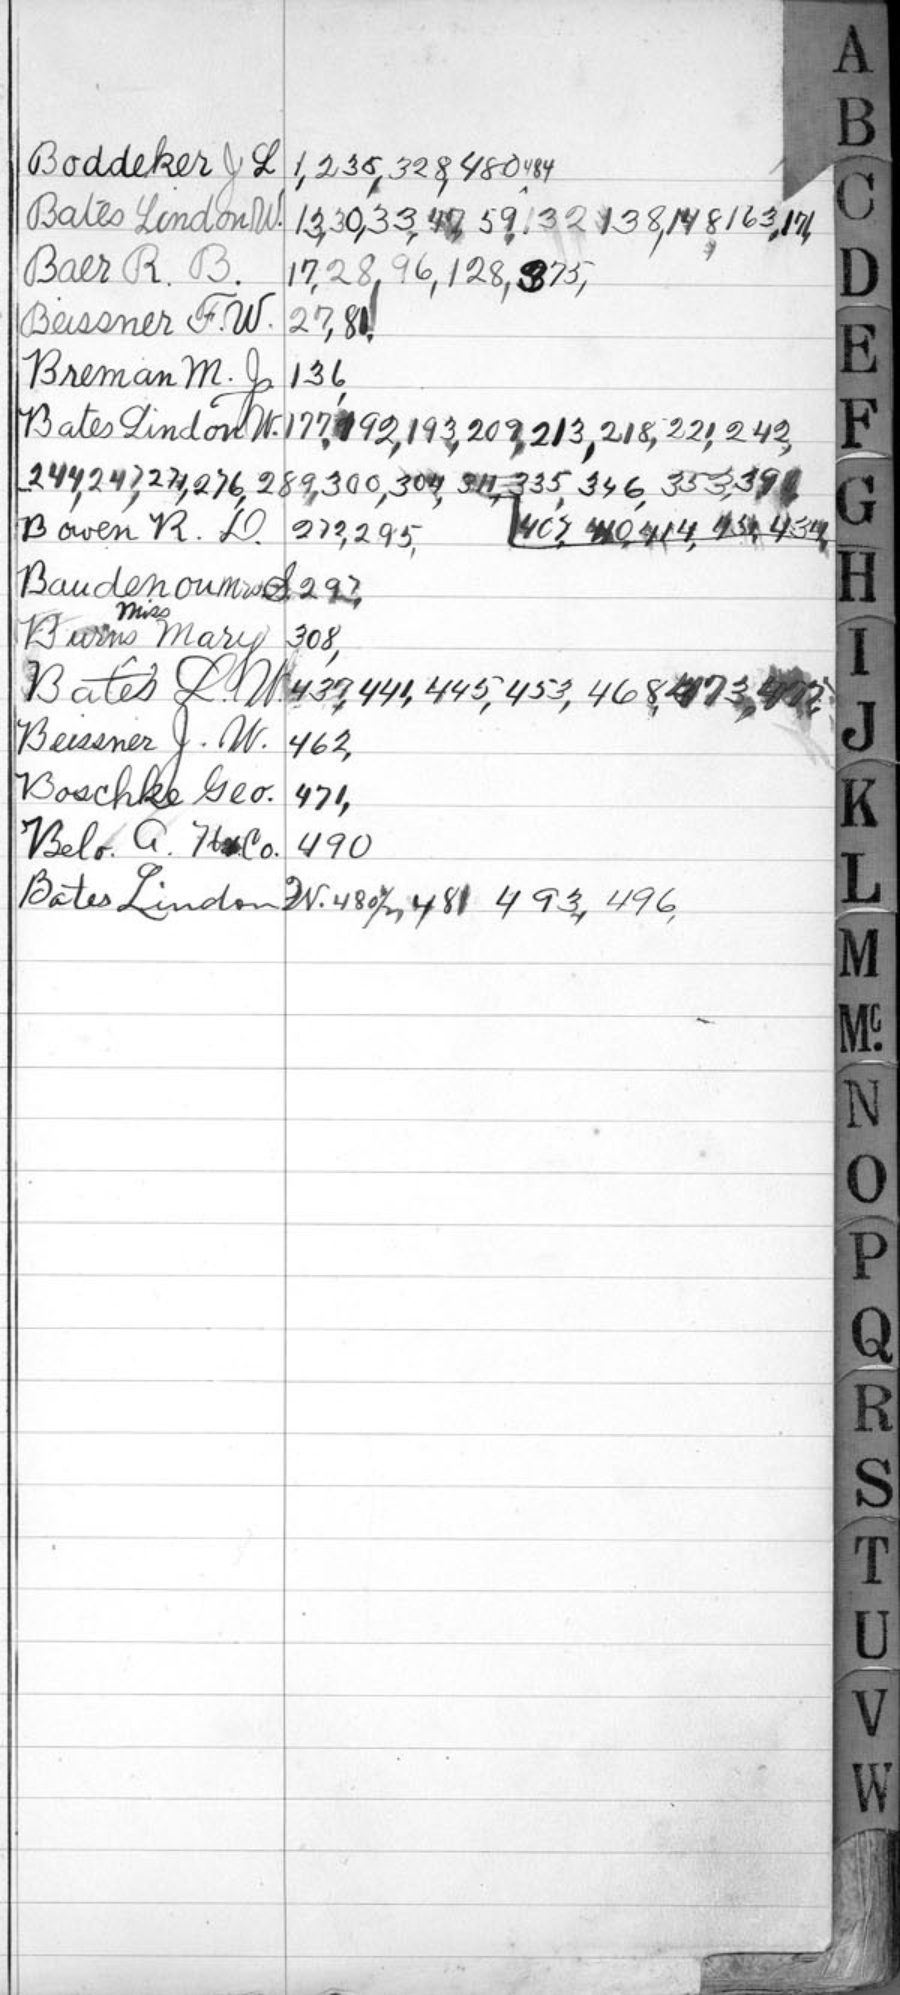 Boddeker J L 1, 235, 328, 480, 484
Bates Lindon W. 13, 30, 33, 47, 59, 132 138, 148 163, 171,
Baer R. B. 17, 28, 96, 128, 375,
Beissner F. W. 27, 81,
Breman M. J. 136,
Bates Lindon W. 177, 192, 193, 209, 213, 218, 221, 242,
244, 247, 271, 276, 289, 300, 304, 311, 335, 346, 353, 391,
Bowen R. D. 272, 295, 407, 410, 414, 431, 434,
Baudenou Mrs S. 297,
Miss
Burns Mary 308,
Bates L. W. 437, 441, 445, 453, 468, 473, 477,
Beissner J. W. 462,
Boschke Geo. 471,
Belo. A. H. Co. 490
Bates Lindon W. 480½, 481 493, 496,
A
B
C
D
E
F
G
H
I
J
K
L
M
Mc.
N
O
P
Q
R
S
T
U
V
W